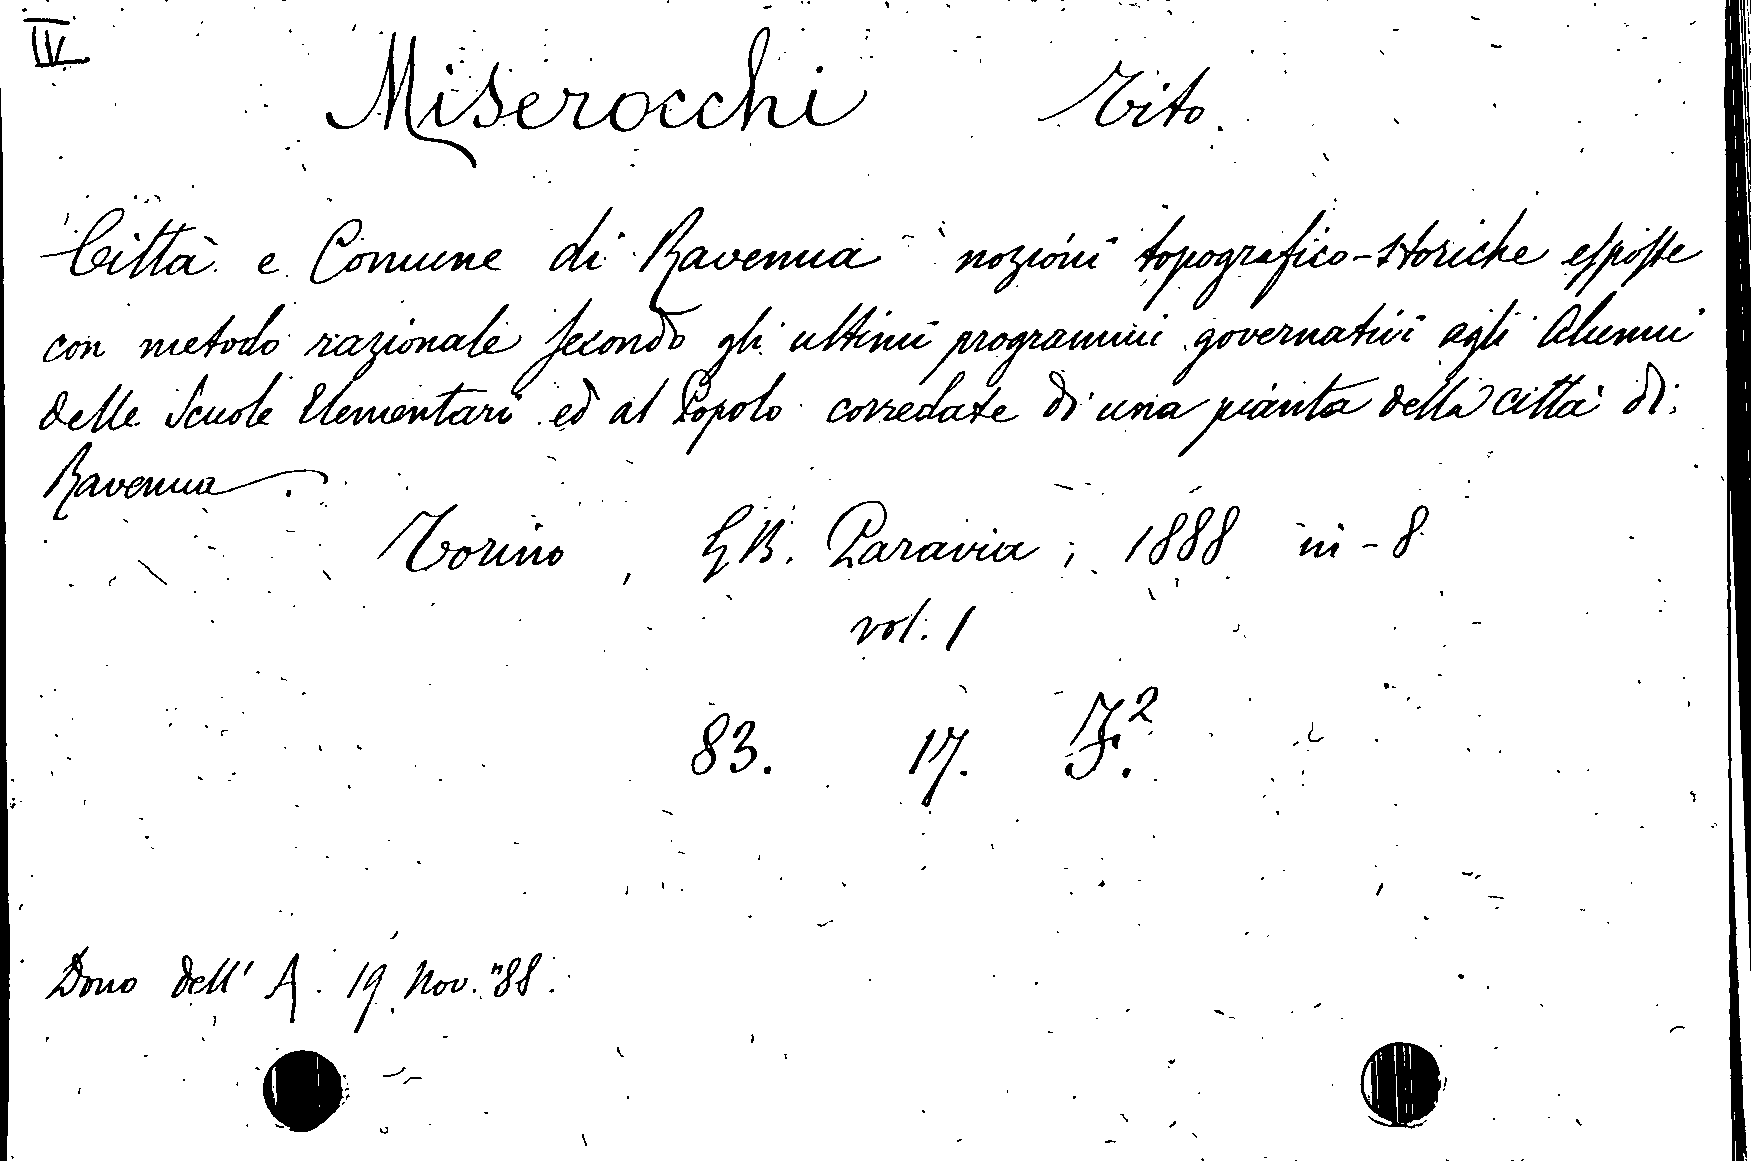 IV
Miserocchi Tito.
Città e Comune di Ravenna nozioni topografico-storiche esposte
con metodo razionale secondo gli ultimi programmi governativi agli Alunni
delle Scuole Elementari ed al Popolo corredate di una pianta della città di
Ravenna.
Torino, G.B. Paravia, 1888 in-8
vol. 1
83. 17. F.²
Dono dell' A. 19 Nov. "88.